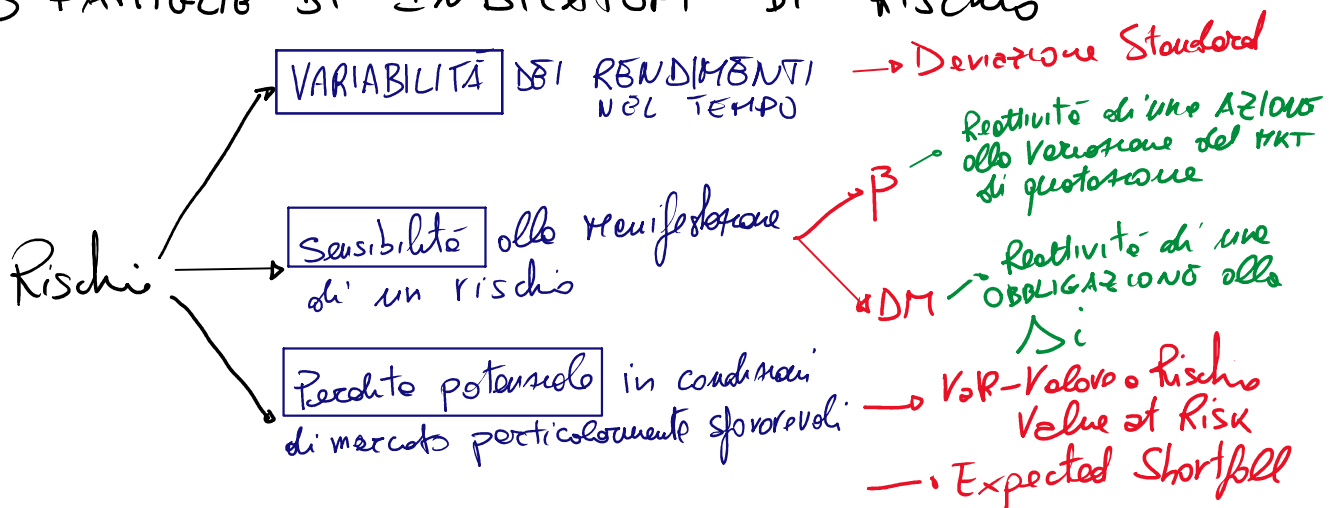 3 FAMIGLIE DI INDICATORI DI RISCHIO
VARIABILITÀ DEI RENDIMENTI
NEL TEMPO
→ Deviazione Standard
Rischi
Sensibilità alla manifestazione
di un rischio
β
Reattività di una AZIONE
alla variazione del MKT
di quotazione
DM
Reattività di una
OBBLIGAZIONE alla
Δi
Perdita potenziale in condizioni
di mercato particolarmente sfavorevoli
→ VaR - Valore a Rischio
Value at Risk
Expected Shortfall